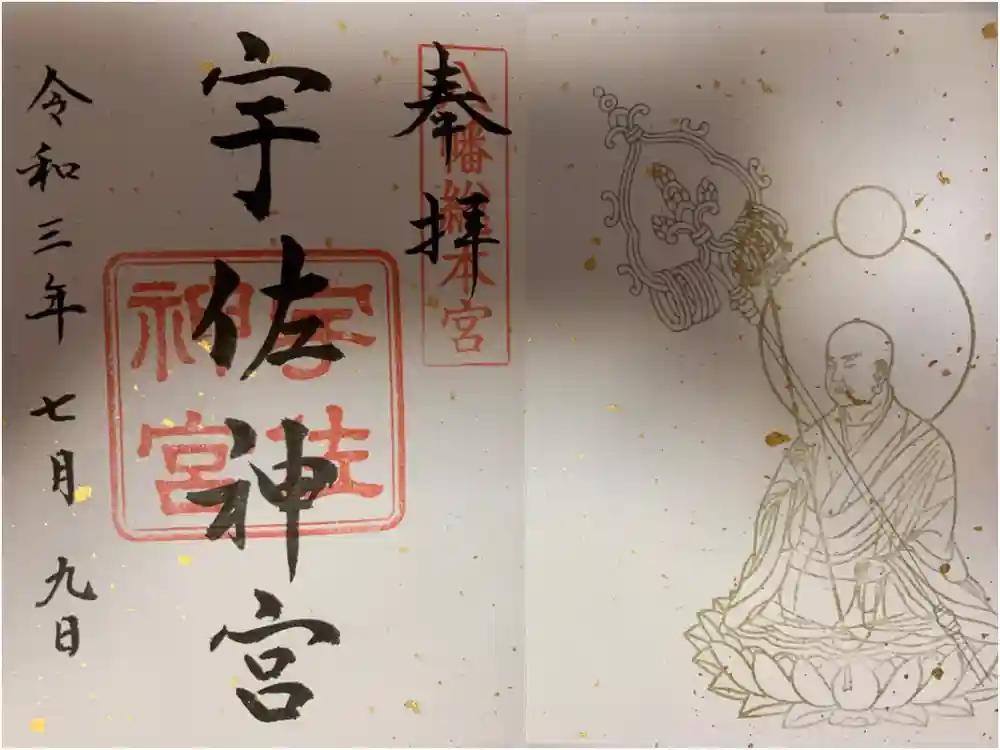 奉拝
八幡総本宮
宇佐神宮
宇佐神宮
令和三年七月九日